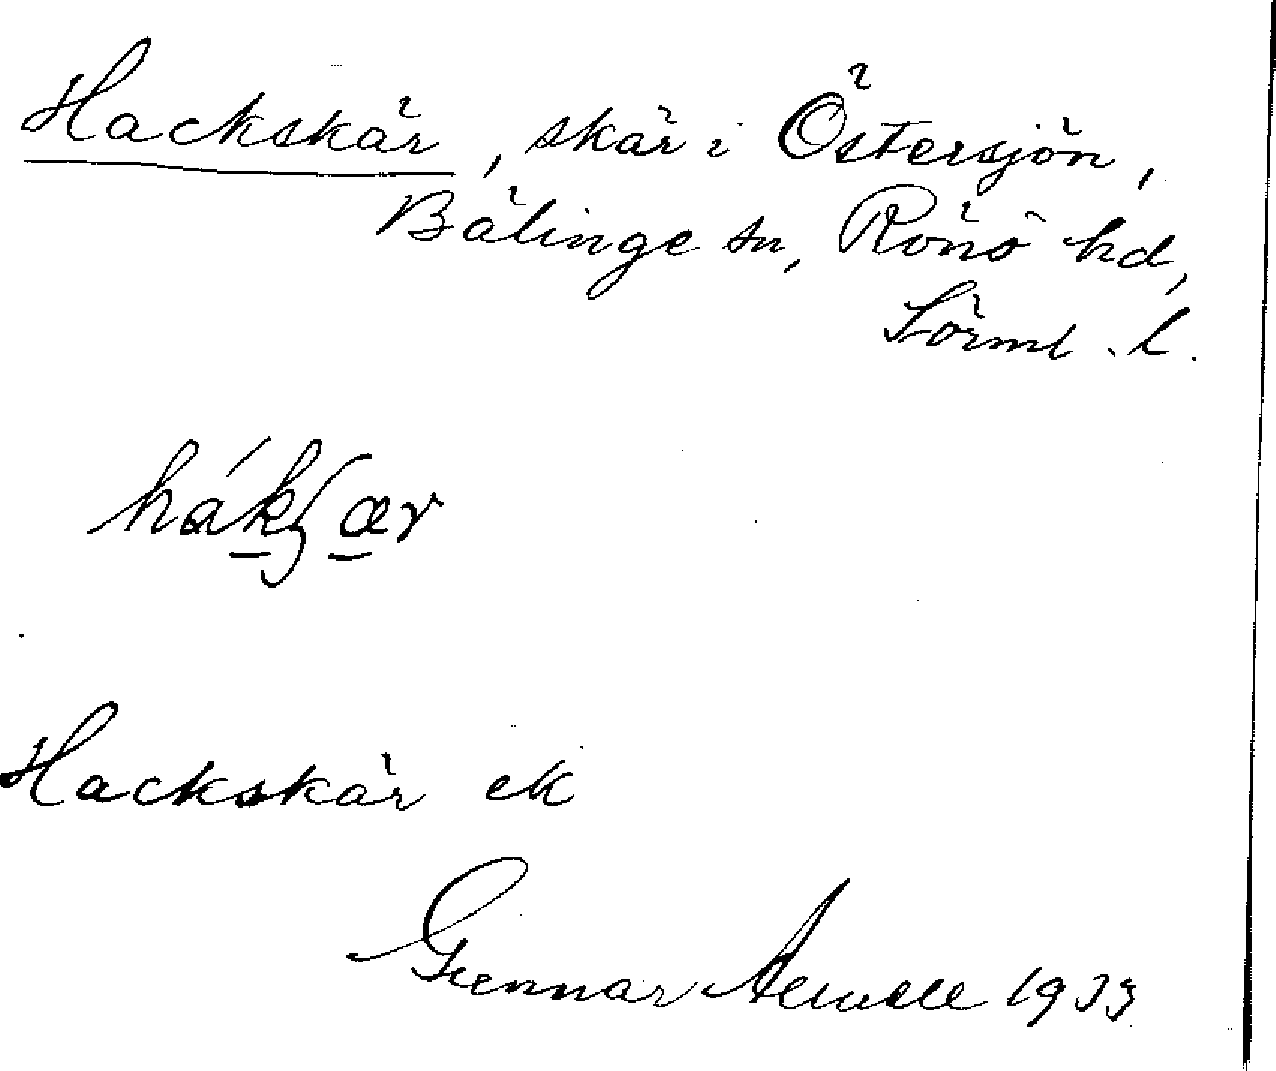 Hackskär, skär i Östersjön,
Bälinge sn, Rönö hd,
Sörml. l.
Hackskär ek
Gunnar 1933